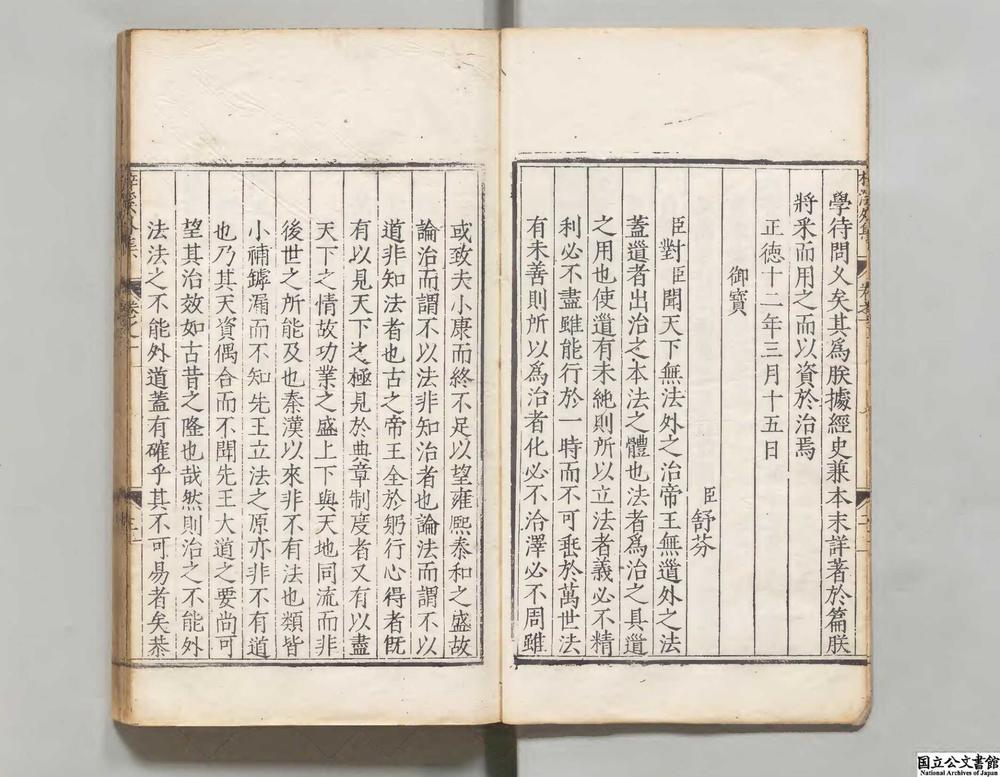 學待問乆矣其爲朕據經史兼本末詳著於篇朕
將釆而用之而以資於治焉
正德十二年三月十五日
御寳
臣舒芬
臣對臣聞天下無法外之治帝王無道外之法
蓋道者出治之本法之體也法者爲治之具道
之用也使道有未純則所以立法者義必不精
利必不盡雖能行於一時而不可垂於萬世法
有未善則所以爲治者化必不洽澤必不周雖
或致夫小康而終不足以望雍熈泰和之盛故
論治而謂不以法非知治者也論法而謂不以
道非知法者也古之帝王全於躬行心得者旣
有以見天下之極見於典章制度者又有以盡
天下之情故功業之盛上下與天地同流而非
後世之所能及也秦漢以來非不有法也類皆
小補罅漏而不知先王立法之原亦非不有道
也乃其天資偶合而不聞先王大道之要尚可
望其治效如古昔之隆也哉然則治之不能外
法法之不能外道蓋有確乎其不可易者矣恭
梓溪外集
卷之一
国立公文書館
National Archives of Japan